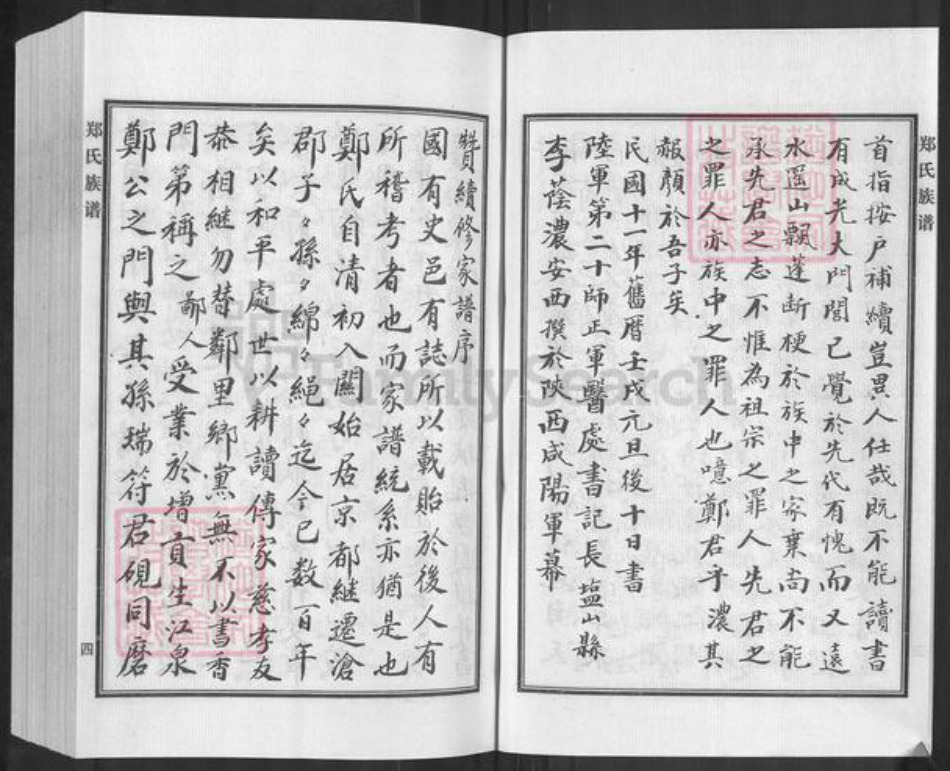 郑氏族谱
首指按户補續豈異人任哉既不能讀書
有成光大門閭已覺於先代有愧而又遠
水遥山飄蓬断梗於族中之家乗尚不能
承先君之志不惟為祖宗之罪人先君之
之罪人亦族中之罪人也噫鄭君乎濃其
赧顔於吾子矣
民國十一年舊曆壬戌元旦後十日書
陸軍第二十師正軍醫處書記長塩山縣
李蔭濃安西撰於陝西咸陽軍幕
郑氏族谱
續修家譜序
國有史邑有誌所以載貽於後人有
所稽考者也而家譜統系亦猶是也
鄭氏自清初入關始居京都継遷滄
郡子々孫々綿々繩々迄今已数百年
矣以和平處世以耕讀傳家慈孝友
恭相継勿替鄰里鄉黨無不以書香
門第稱之鄙人受業於增貢生江泉
鄭公之門與其孫瑞符君硯同磨
四
FamilySearch